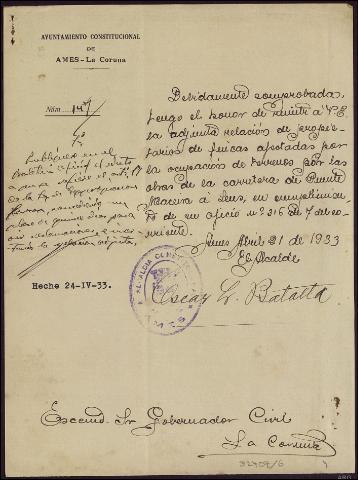 AYUNTAMIENTO CONSTITUCIONAL
DE
AMES-La Coruña
Núm. 147
Debidamente comprobada,
tengo el honor de remitir a V.E.
la adjunta relación de propie-
tarios de fincas afectadas por
la ocupación de terrenos por las
obras de la carretera de Puente
Maceira a Leus, en cumplimien
to de su oficio nº 316 de 7 del co-
rriente.
Ames Abril 21 de 1933
El Alcalde
Oscar L. Batalla
Publíquese en el
Boletín oficial
de la Ley de expropiación
forzosa,
plazo de quince días para
reclamaciones,
la relación adjunta,
Heche 24-IV-33.
ALCALDIA CONSTITUCIONAL
AMES
Excmo. Sr Gobernador Civil
La Coruña
32909/6